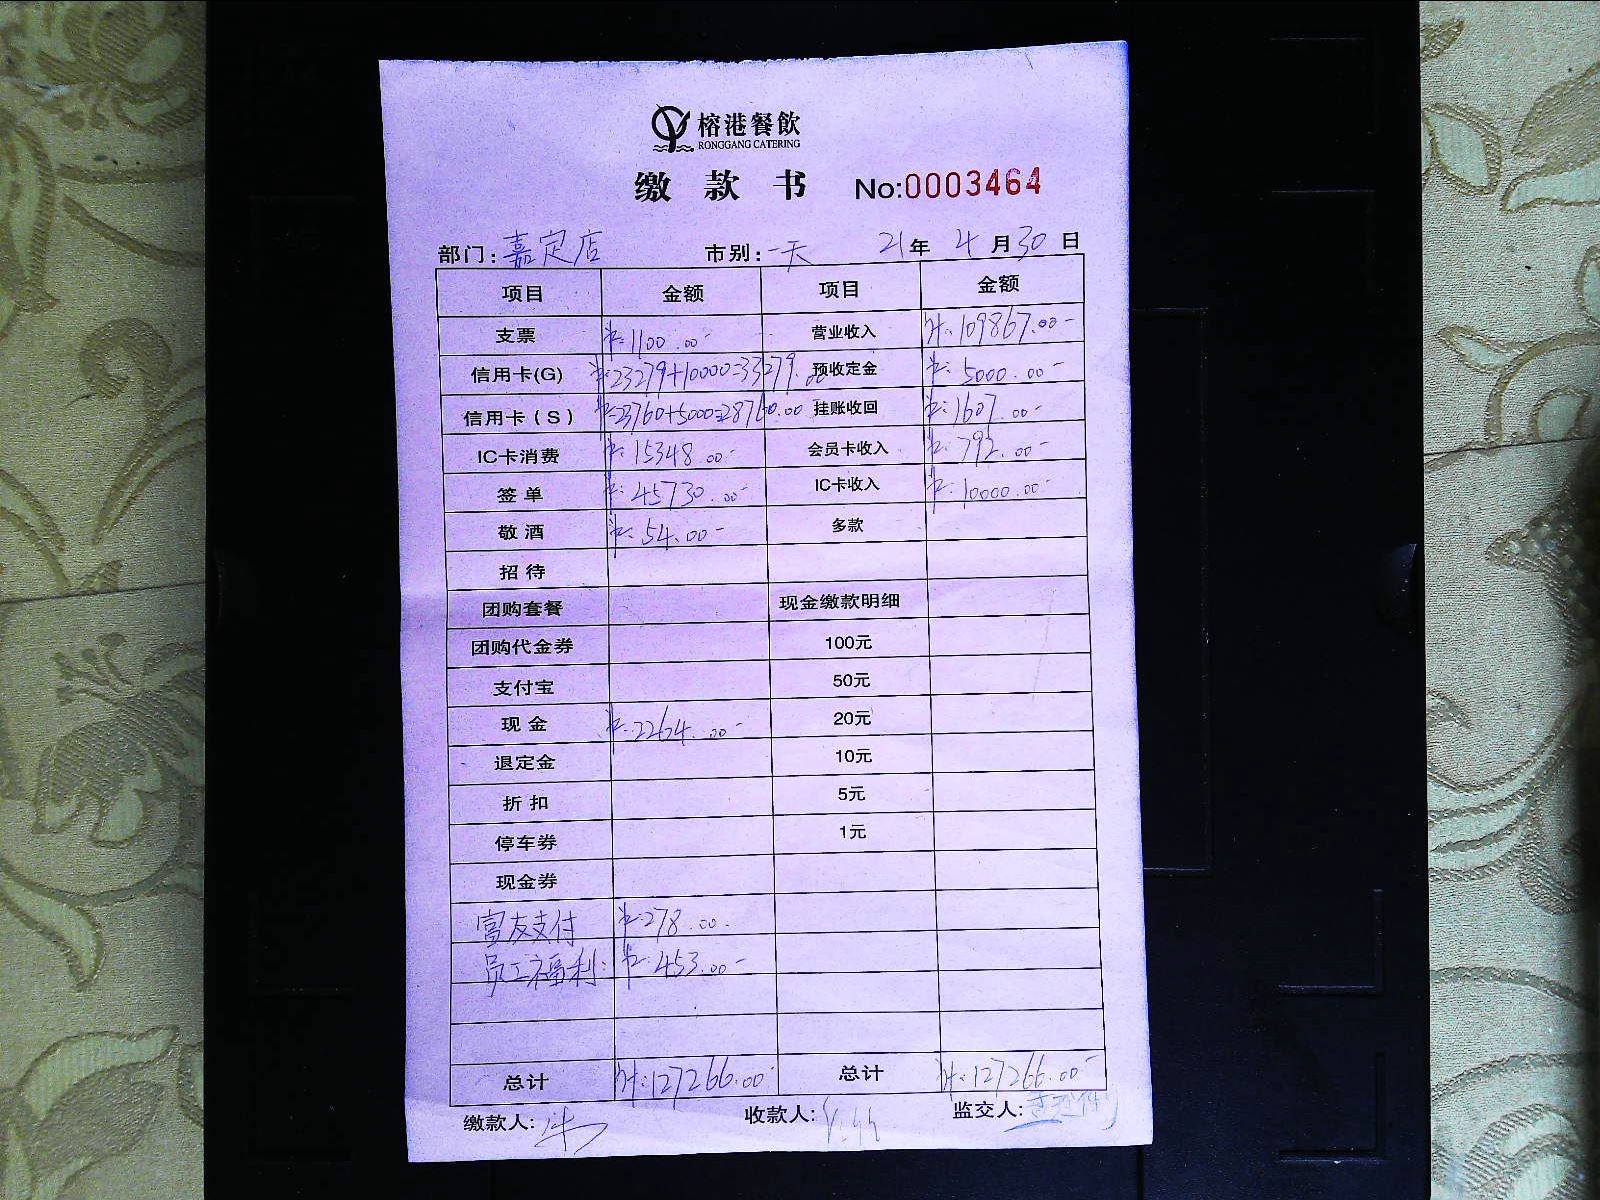 榕港餐飲
RONGGANG CATERING
缴款书 No:0003464
部门:嘉定店 市别:一天 21年 4月30日
项目 金额 项目 金额
支票 ¥:1100.00- 营业收入 ¥:109867.00-
信用卡(G) ¥:23279+10000=33279.00 预收定金 ¥:5000.00-
信用卡(S) ¥:23760+5000=28760.00 挂账收回 ¥:1607.00-
IC卡消费 ¥:15348.00- 会员卡收入 ¥:792.00-
签单 ¥:45730.00- IC卡收入 ¥:10000.00-
敬酒 ¥:54.00- 多款
招待
团购套餐 现金缴款明细
团购代金券 100元
支付宝 50元
现金 ¥:2264.00- 20元
退定金 10元
折扣 5元
停车券 1元
现金券
富友支付 ¥:278.00-
员工福利: ¥:453.00-
总计 ¥:127266.00 总计 ¥:127266.00-
缴款人: 收款人: 监交人: